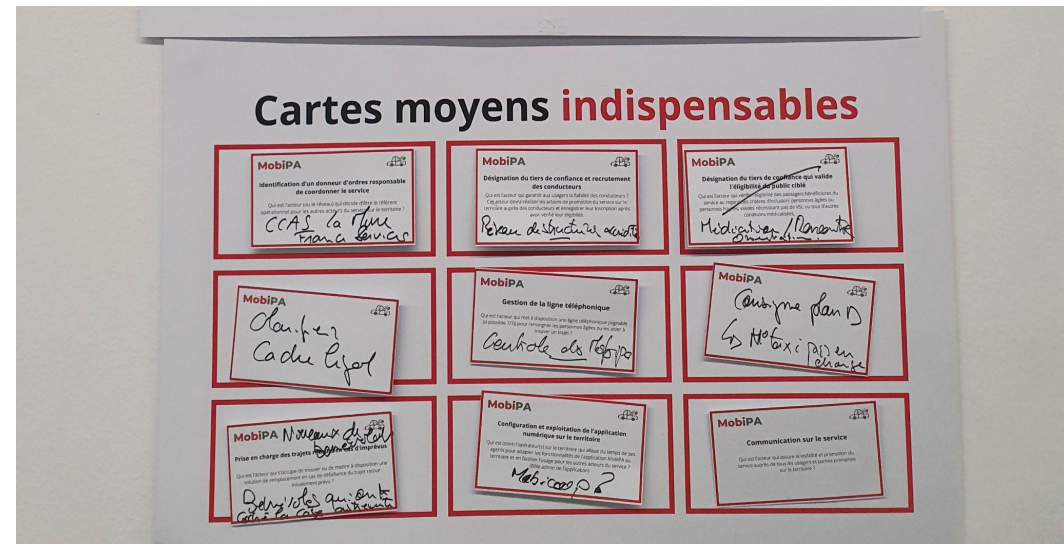 Cartes moyens indispensables
MobiPA
Identification d'un donneur d'ordres responsable
de coordonner le service
Qui est l'acteur (ou le réseau) qui décide d'être le référent
opérationnel pour les autres acteurs du service sur le territoire ?
CCAS la Mure
France Services
MobiPA
Désignation du tiers de confiance et recrutement
des conducteurs
Qui est l'acteur qui garantit aux usagers la fiabilité des conducteurs ?
Cet acteur devra réaliser les actions de promotion du service sur le
territoire auprès des conducteurs et enregistrer leur inscription après
avoir vérifié leur éligibilité.
Réseau de structure
MobiPA
Désignation du tiers de confiance qui valide
l'éligibilité du public ciblé
Qui est l'acteur qui vérifie l'éligibilité des passagers bénéficiaires du
service au regard des critères d'inclusion: personnes âgées ou
personnes fragiles, valides nécessitant pas de VSL ou tout d'autres
conditions médicalisées.
Médiation / Rencontre
MobiPA
Clarifier
Cadre légal
MobiPA
Gestion de la ligne téléphonique
Qui est l'acteur qui met à disposition une ligne téléphonique joignable
(si possible 7/7j) pour renseigner les personnes âgées ou les aider à
trouver un trajet ?
Centrale de
MobiPA
Consigne plan D
↳ taxi pris en
charge
MobiPA Nouveaux
Prise en charge des trajets en cas d'imprévus
Qui est l'acteur qui s'occupe de trouver ou de mettre à disposition une
solution de remplacement en cas de défaillance du trajet retour
initialement prévu ?
Bénévoles qui ont
MobiPA
Configuration et exploitation de l'application
numérique sur le territoire
Qui est (sont) l'opérateur(s) sur le territoire qui alloue du temps de ses
agents pour adapter les fonctionnalités de l'application MobiPA au
territoire et en faciliter l'usage pour les autres acteurs du service ?
(Rôle admin de l'application)
Mobicoop ?
MobiPA
Communication sur le service
Qui est l'acteur qui assure la visibilité et promotion du
service auprès de tous les usagers et parties prenantes
sur le territoire ?